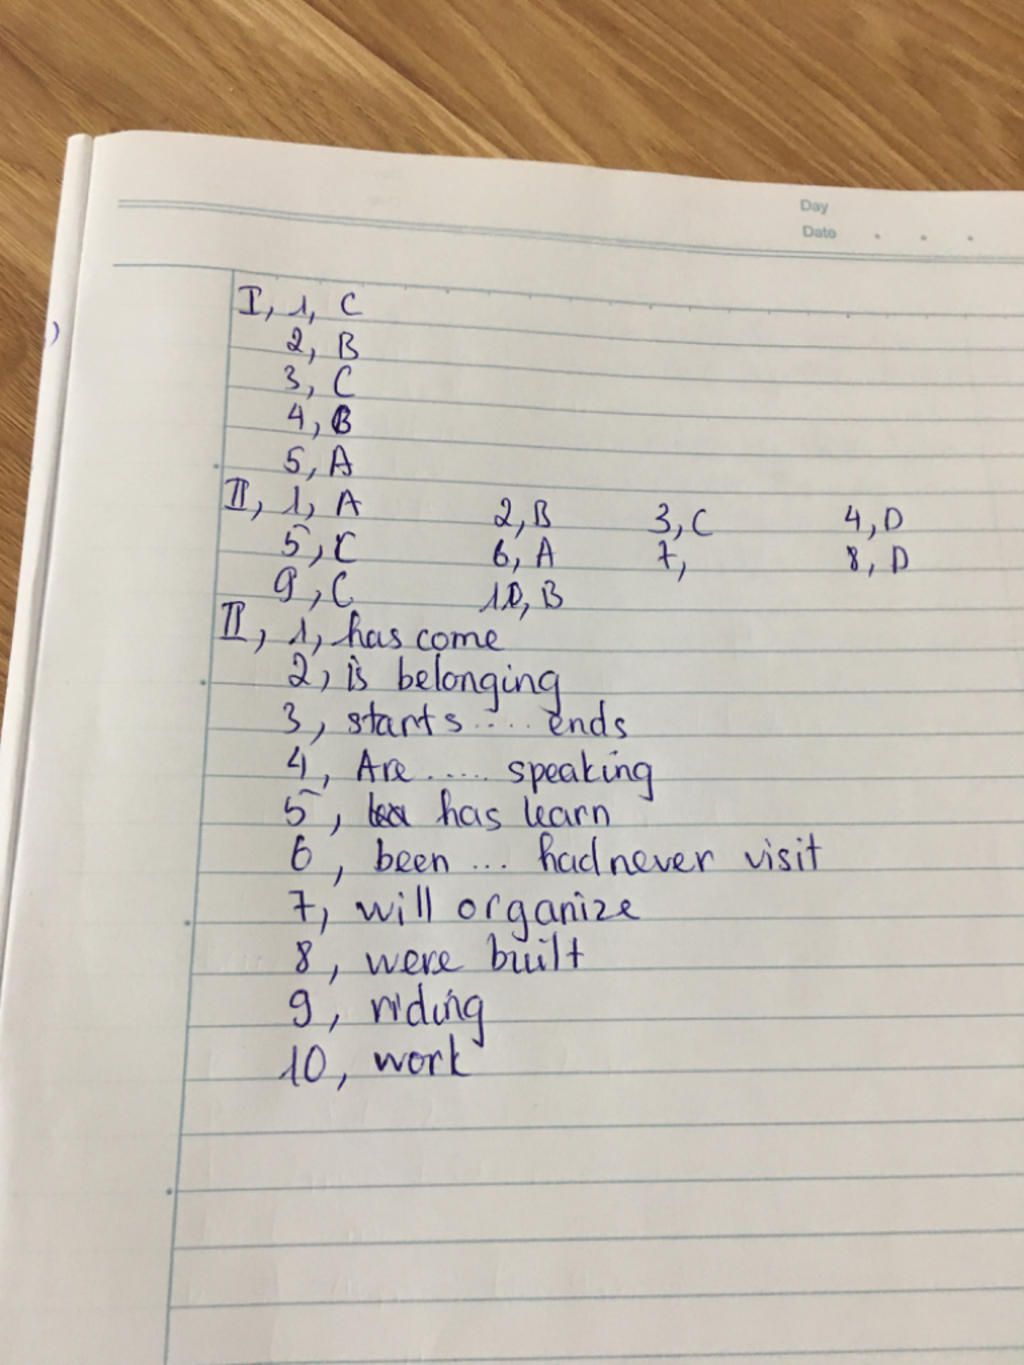 Day
Date . . .
I, 1, C
2, B
3, C
4, B
5, A
II, 1, A 2, B 3, C 4, D
5, C 6, A 7, 8, D
9, C 10, B
II, 1, has come
2, is belonging
3, starts .... ends
4, Are ..... speaking
5, has learn
6, been ... had never visit
7, will organize
8, were built
9, riding
10, work